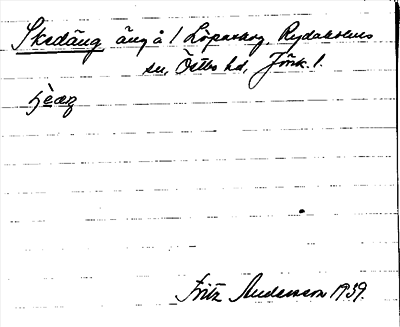 Skedäng äng å 1 Löpaskog, Rydaholms
sn, Östbo hd, Jönk. l.
Fritz Andersson 1939.